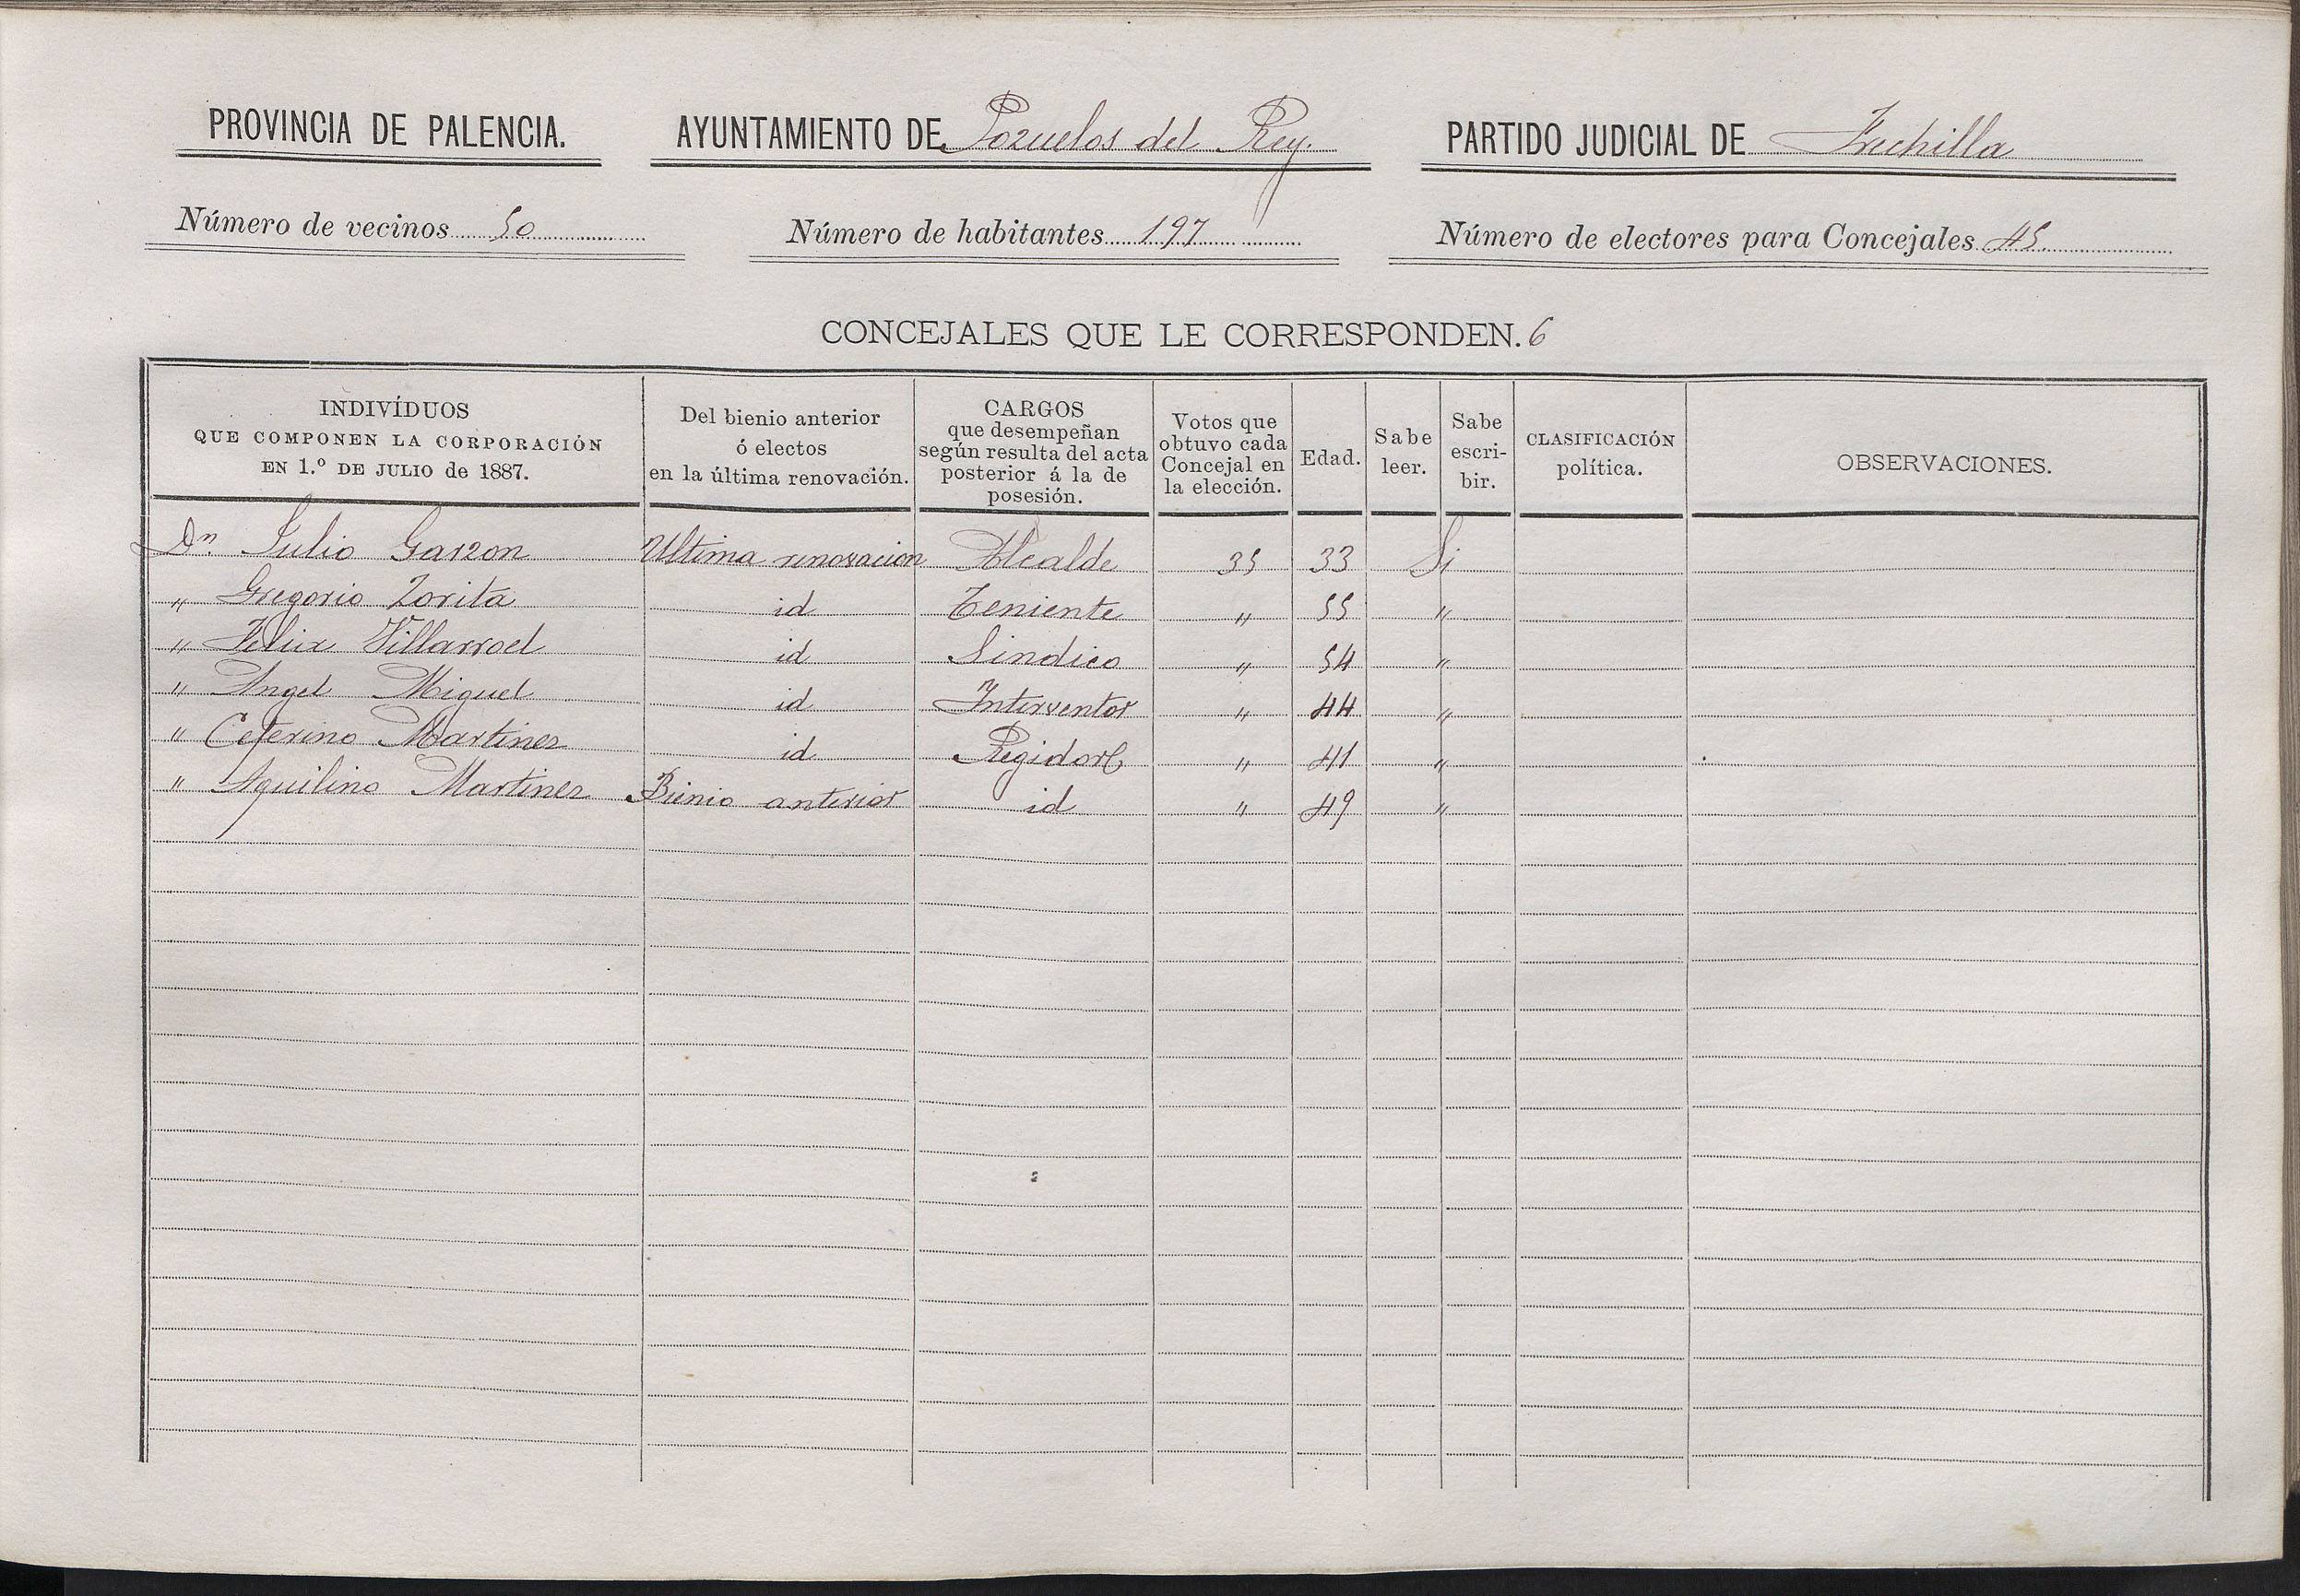 PROVINCIA DE PALENCIA. AYUNTAMIENTO DE Pozuelos del Rey. PARTIDO JUDICIAL DE Frechilla
Número de vecinos 50 Número de habitantes 197 Número de electores para Concejales 45
CONCEJALES QUE LE CORRESPONDEN. 6
INDIVÍDUOS
QUE COMPONEN LA CORPORACIÓN
EN 1.º DE JULIO de 1887.
Del bienio anterior
ó electos
en la última renovación.
CARGOS
que desempeñan
según resulta del acta
posterior á la de
posesión.
Votos que
obtuvo cada
Concejal en
la elección.
Edad.
Sabe
leer.
Sabe
escri-
bir.
CLASIFICACIÓN
política.
OBSERVACIONES.
Dn. Julio Garzon Ultima renovacion Alcalde 35 33 Si
" Gregorio Zorita id Teniente " 55 "
" Felix Villarroel id Sindico " 54 "
" Angel Miguel id Interventor " 44 "
" Ceferino Martinez id Regidor " 41 "
" Aquilino Martinez Bienio anterior id " 49 "